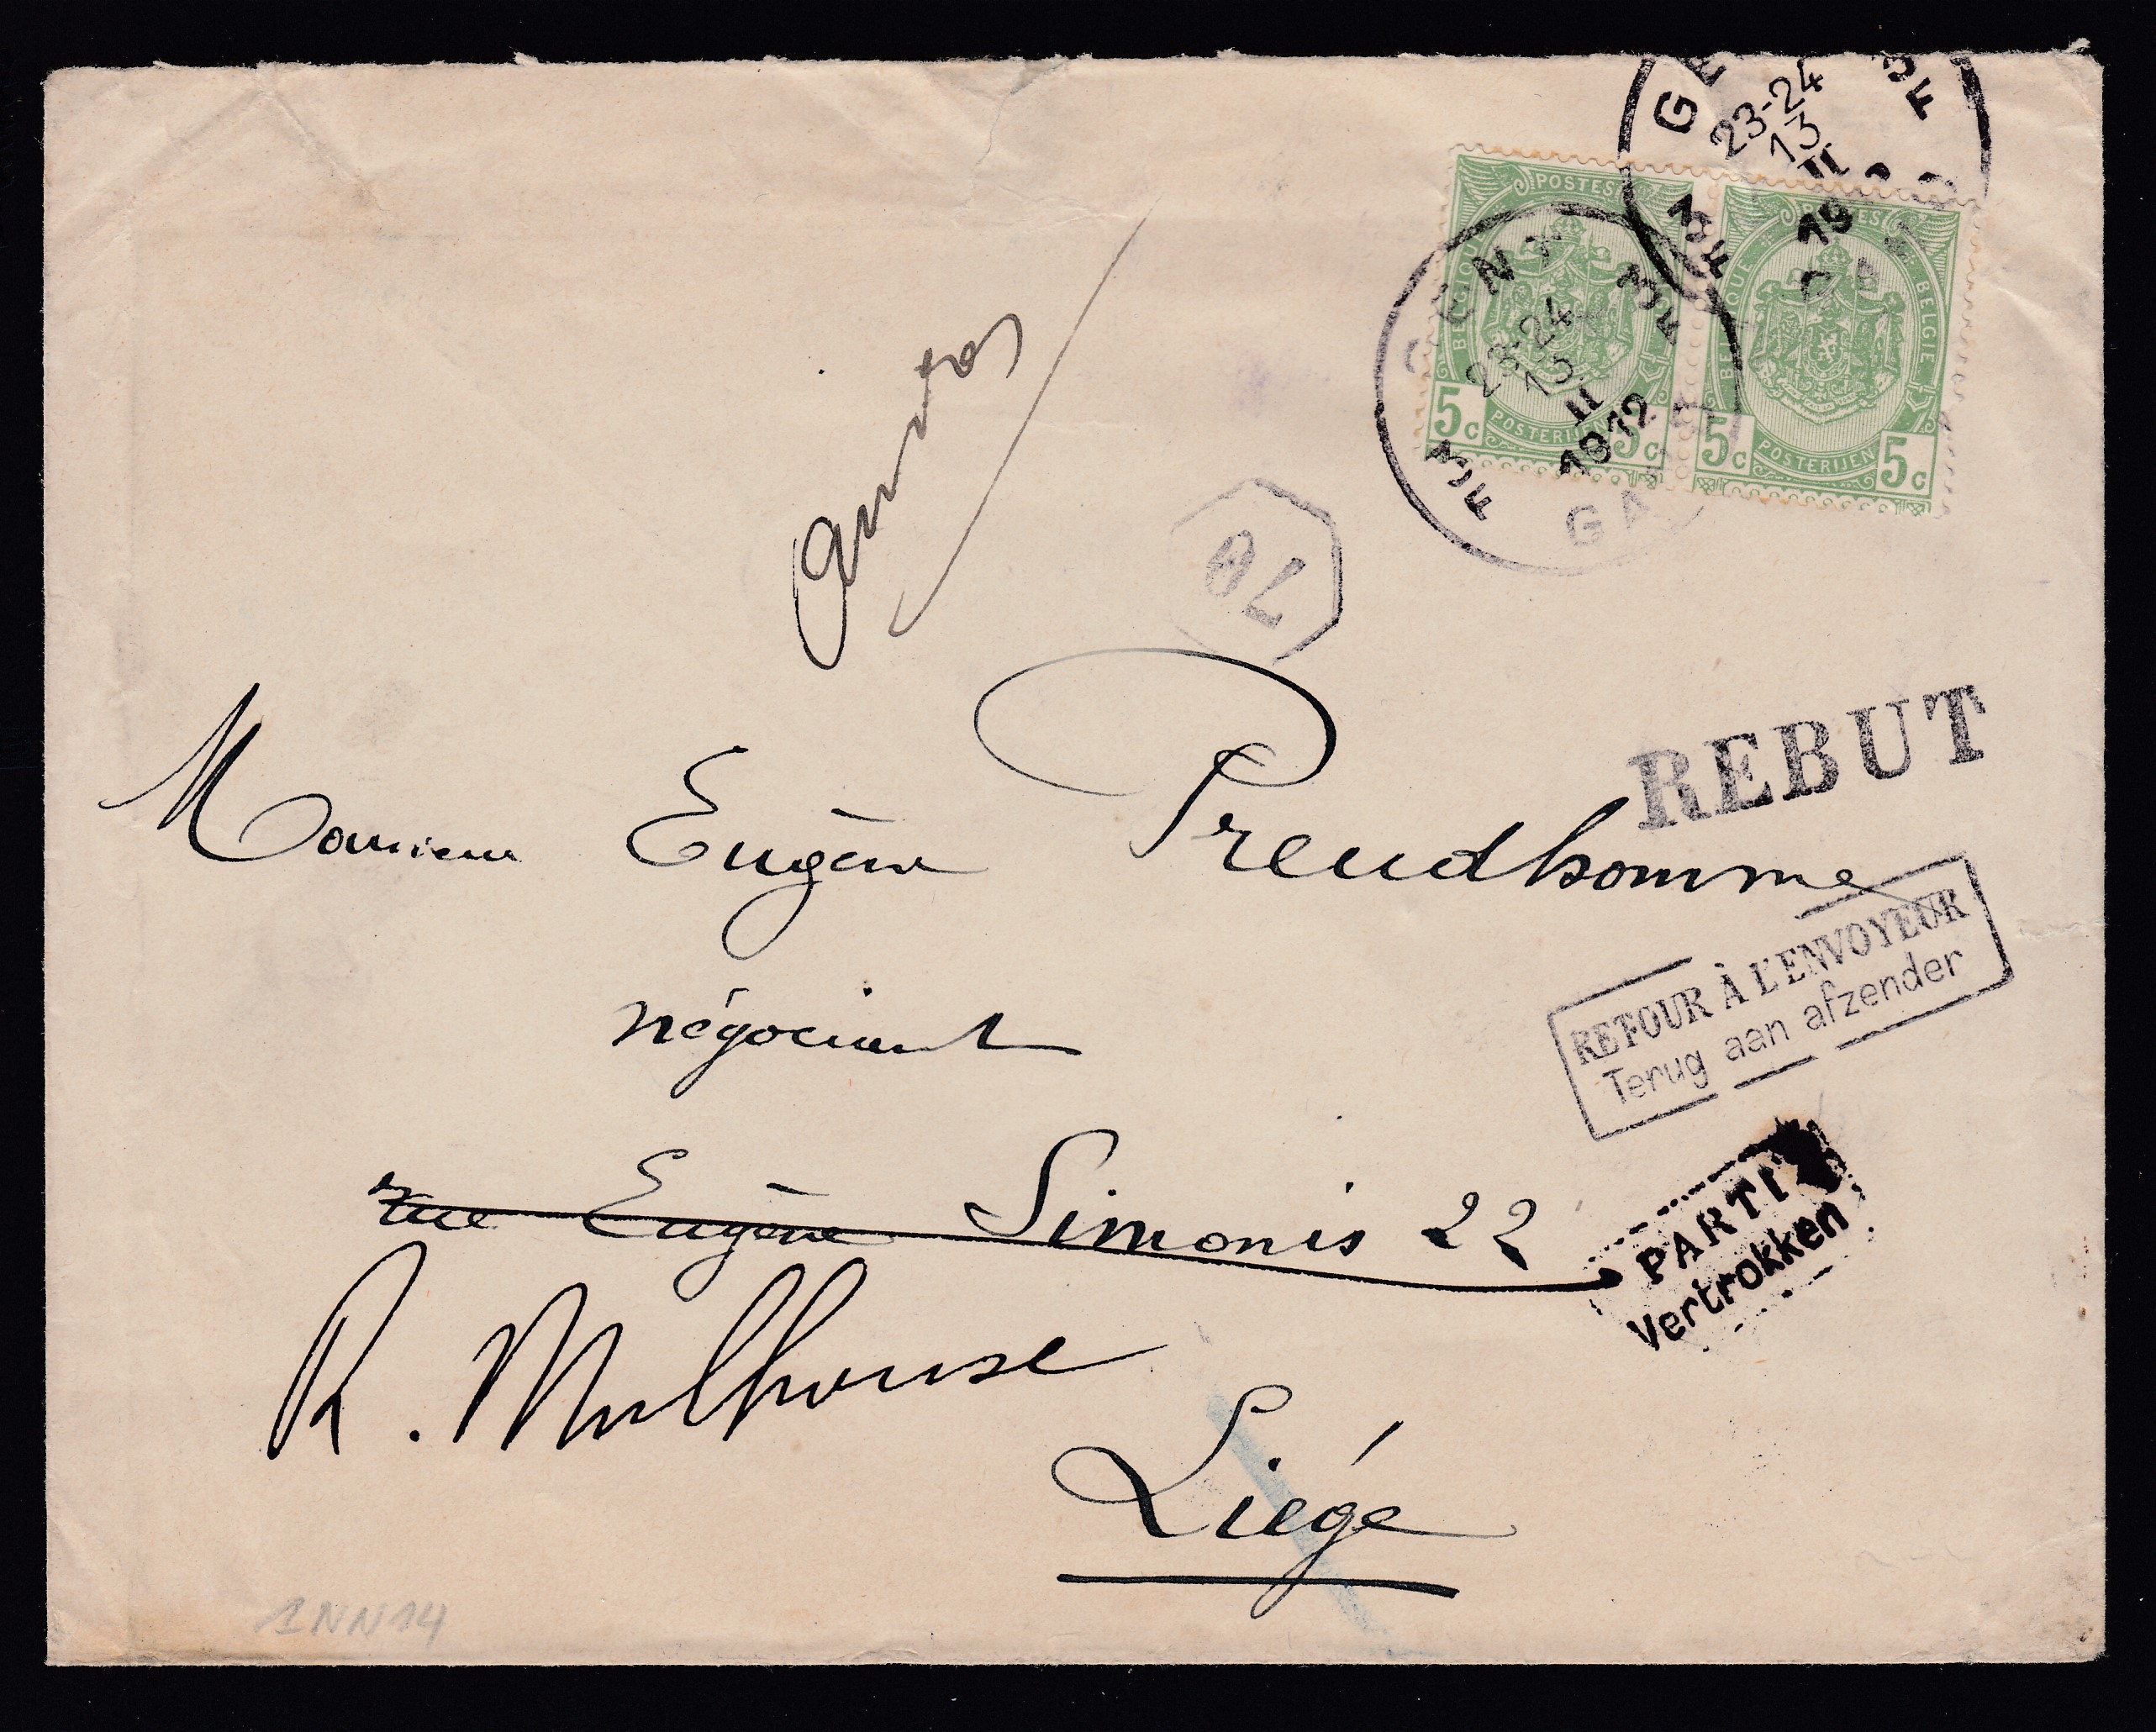 GE
23-24
13
II
19
3F
POSTES
BELGIQUE
5c POSTERIJEN 5c
POSTES
BELGIQUE BELGIE
5c POSTERIJEN 5c
GENT
23-24
13
II
1912
3F
3F
GA
70
REBUT
Monsieur Eugène Preudhomme
RETOUR À L'ENVOYEUR
Terug aan afzender
négociant
rue Eugène Simonis 22
PARTI
Vertrokken
R. Mulhouse
Liége
1NN14